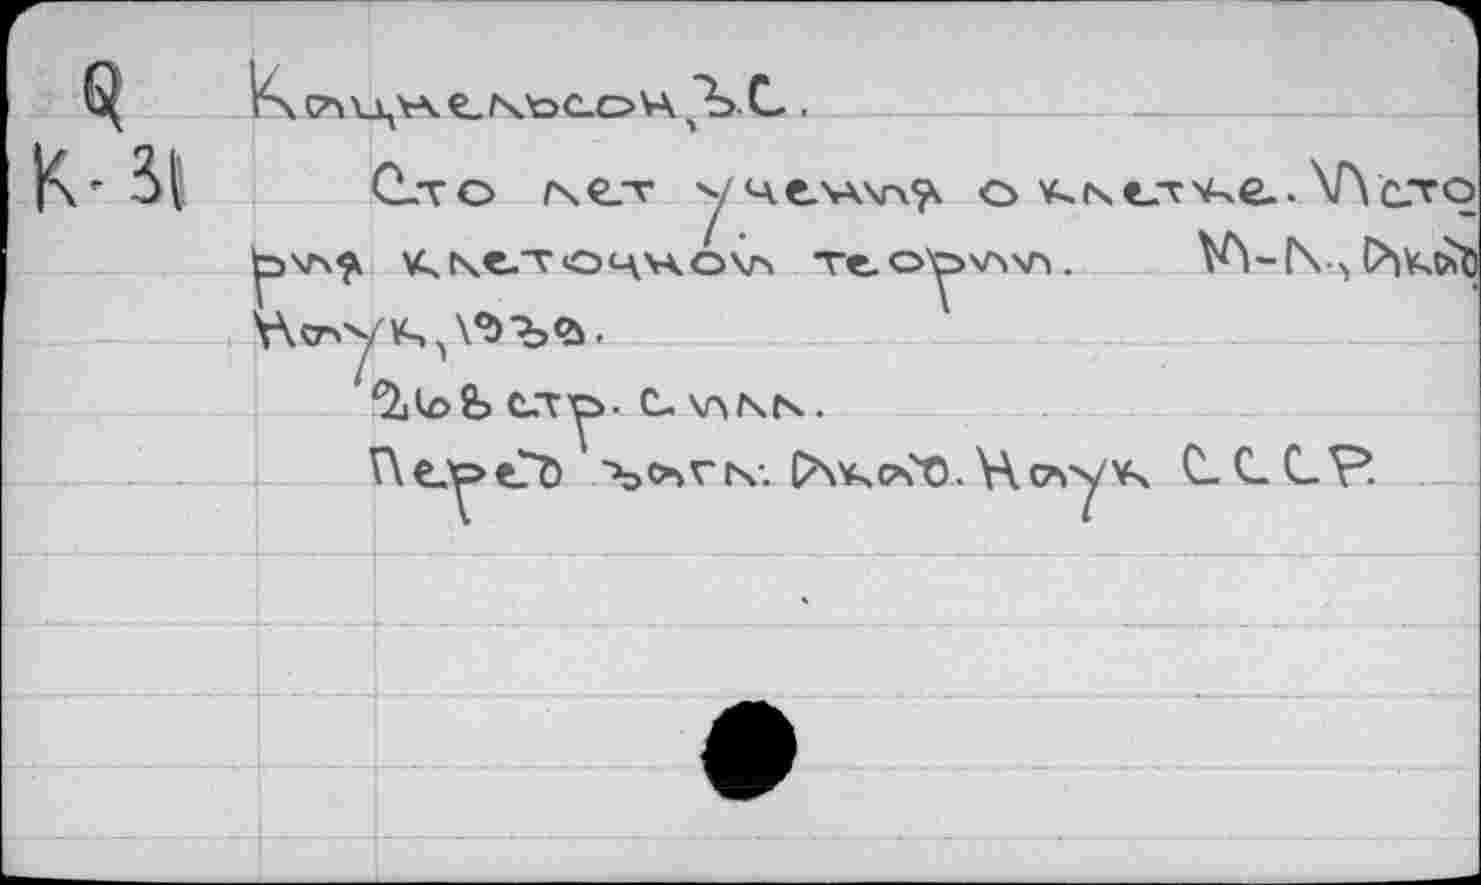 Q Кацнельсон,З.С.
К-31 Сто лет учения о клетке. Исто
рия клеточной теории. М-Л., Акад.
Наук, 1939.
268 стр. с илл.
Перед загл: Акад. Наук СССР.